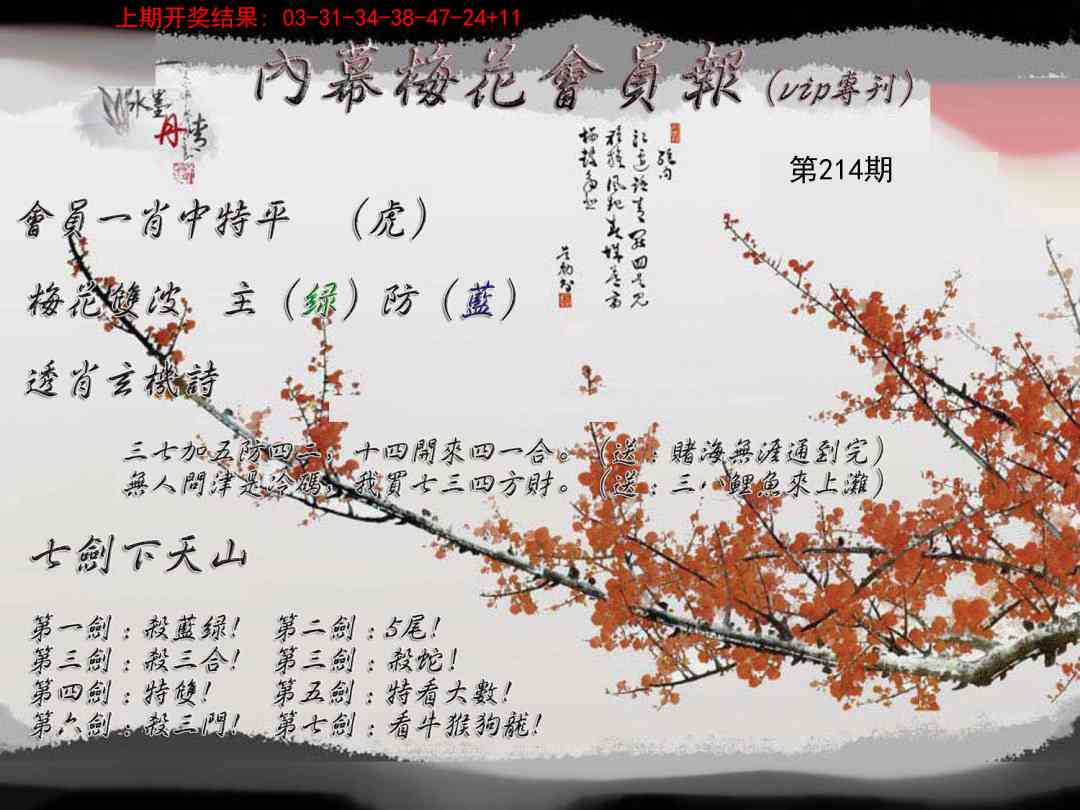 上期开奖结果: 03-31-34-38-47-24+11
內幕梅花會員報(vip專刊)
水墨
丹青
第214期
會員一肖中特平 (虎)
梅花雙波 主(绿)防(藍)
透肖玄機詩
三七加五防四二，十四開來四一合。(送:賭海無涯通到完)
無人問津是冷碼，我買七三四方財。(送:三八鯉魚來上灘)
七劍下天山
第一劍:殺藍绿! 第二劍:5尾!
第三劍:殺三合! 第三劍:殺蛇!
第四劍:特雙! 第五劍:特看大數!
第六劍:殺三門! 第七劍:看牛猴狗龍!